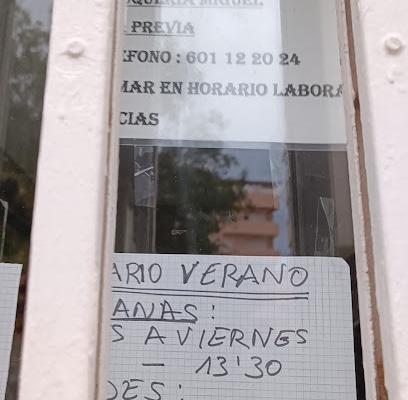 QUERÍA MIGUEL
PREVIA
FONO : 601 12 20 24
MAR EN HORARIO LABORA
CIAS
ARIO VERANO
ANAS :
S A VIERNES
— 13'30
DES :